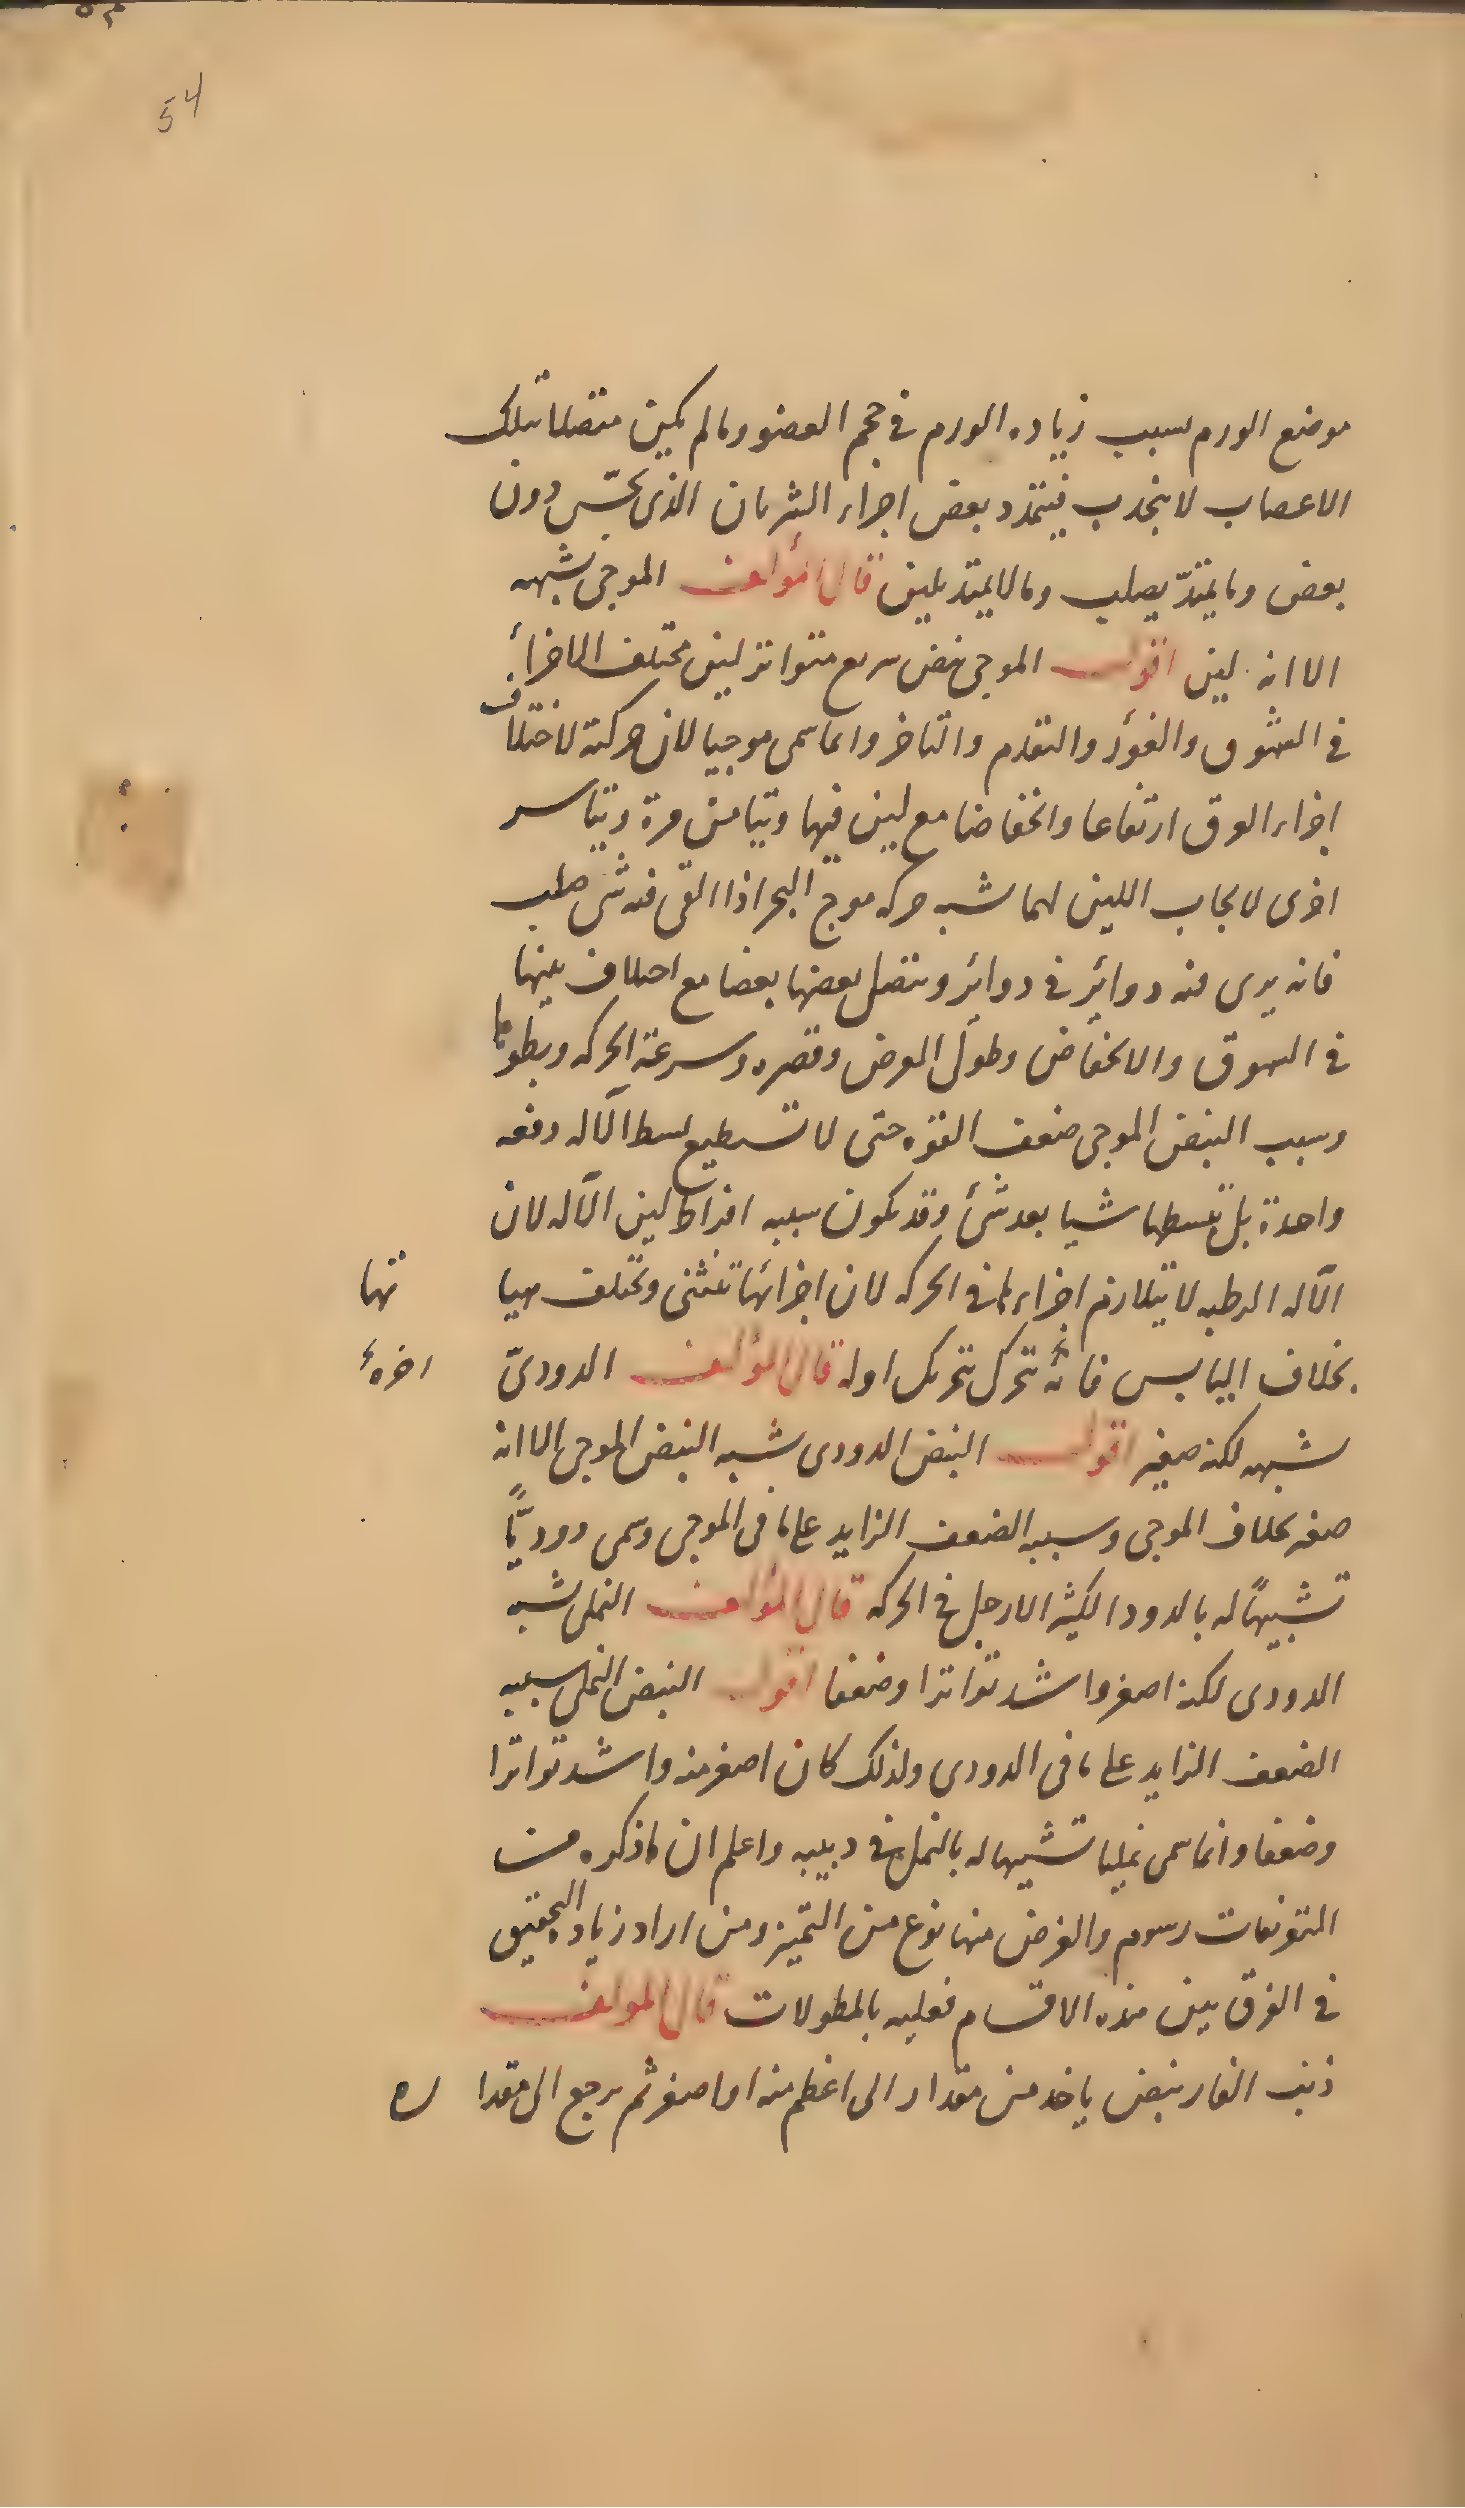 54
موضع الورم بسبب زياده الورم في حجم العضو وما لم يكن متصلا بتلك
الاعصاب لا ينجذب فيتمدد بعض اجزاء الشريان الذى يحسّ دون
بعض وما يمتدّ يصلب وما لا يمتد يلين قال المؤلف الموجى شبهه
الا انه لين اقول الموجى نبض سريع متواتر لين مختلف الاجزأ
في الشهوق والغؤر والتقدم والتاخر وانما سمى موجيا لان حركته لاختلاف
اجزاء العرق ارتفاعا وانخفاضا مع لين فيها وتيامن مرة وتياسر
اخرى لايجاب اللين لهما شبه حركه موج البحر اذا القى فيه شى صلب
فانه يرى منه دوائر في دوائر ويتصل بعضها بعضا مع اختلاف بينها
في الشهوق والانخفاض وطول العرض وقصره وسرعة الحركه وبطوئها
وسبب النبض الموجى ضعف القوه حتى لا تستطيع بسط الآله دفعه
واحدة بل تبسطها شيا بعد شئ وقد يكون سببه افراط لين الآله لان
الآله الرطبه لا يتلازم اجزاءها في الحركه لان اجزائها تنثنى وتختلف هيا تها
بخلاف اليابس فانه تتحرك بتحريك اوله قال المؤلف الدودىّ
اخره
شبهه لكنه صغير اقول النبض الدودى شبه النبض الموجى الا انه
صغير بخلاف الموجى وسببه الضعف الزايد على ما في الموجى وسمى دوديًّا
تشبيهًا له بالدود الكثير الارجل في الحركه قال المؤلف النملى شبه
الدودى لكنه اصغر واشد تواترا وضعفا اقول النبض النملى سببه
الضعف الزايد على ما في الدودى ولذلك كان اصغر منه واشد تواترا
وضعفا وانما سمى نمليا تشبيها له بالنمل في دبيبه واعلم ان ما ذكره من
التعريفات رسوم والغرض منها نوع من التميز ومن اراد زياده التحقيق
في الفرق بين هذه الاقسام فعليه بالمطولات قال المؤلف
ذنب الفار نبض ياخذ من مقدار الى اعظم منه او اصغر ثم يرجع الى مقدا ره